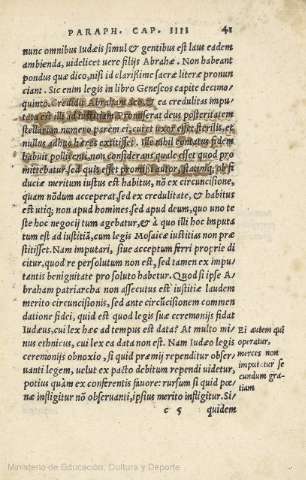 PARAPH. CAP. IIII 41
nunc omnibus Iudæis simul & gentibus est laus eadem
ambienda, uidelicet uere filijs Abrahæ. Non habeant
pondus quæ dico, nisi id clarissime sacræ literæ pronun
ciant. Sic enim legis in libro Geneseos capite decimo-
quinto. Credidit Abraham deo, & ea credulitas impu
tata est illi ad iustitiam
stellarum numero parem ei, cui et uxor esset sterilis, et
nullus adhuc hæres extitisset. Ille nihil contatus fidem
habuit pollicenti, non considerans quale esset quod pro
mittebatur, sed quis esset promissi autor, statimq; ob fi
duciæ meritum iustus est habitus, nõ ex circuncisione,
quam nõdum acceperat, sed ex credulitate, & habitus
est utiq; non apud homines, sed apud deum, quo uno te
ste hoc negocij tum agebatur, & à quo illi hoc imputa
tum est ad iustitiã, cum legis Mosaicæ iustitias non præ
stitisset. Nam imputari, siue acceptum ferri proprie di
citur, quod re persolutum non est, sed tamen ex impu
tantis benignitate pro soluto habetur. Quod si ipse A-
braham patriarcha non assecutus est iustitiæ laudem
merito circuncisionis, sed ante circũcisionem commen
datione fidei, quid est quod legis suæ ceremonijs fidat
Iudæus, cui lex hæc ad tempus est data? At multo mi
nus ethnicus, cui lex ea data non est. Nam Iudæo legis
ceremonijs obnoxio, si quid præmij rependitur obser-
uanti legem, uelut ex pacto debitum rependi uidetur,
potius quàm ex conferentis fauore: rursum si quid pœ
næ infligitur nõ obseruanti, ipsius merito infligitur. Si
c 5 quidem
Ei autem qui
operatur,
merces non
imputatur se
cundum gra
tiam
Ministerio de Educación, Cultura y Deporte